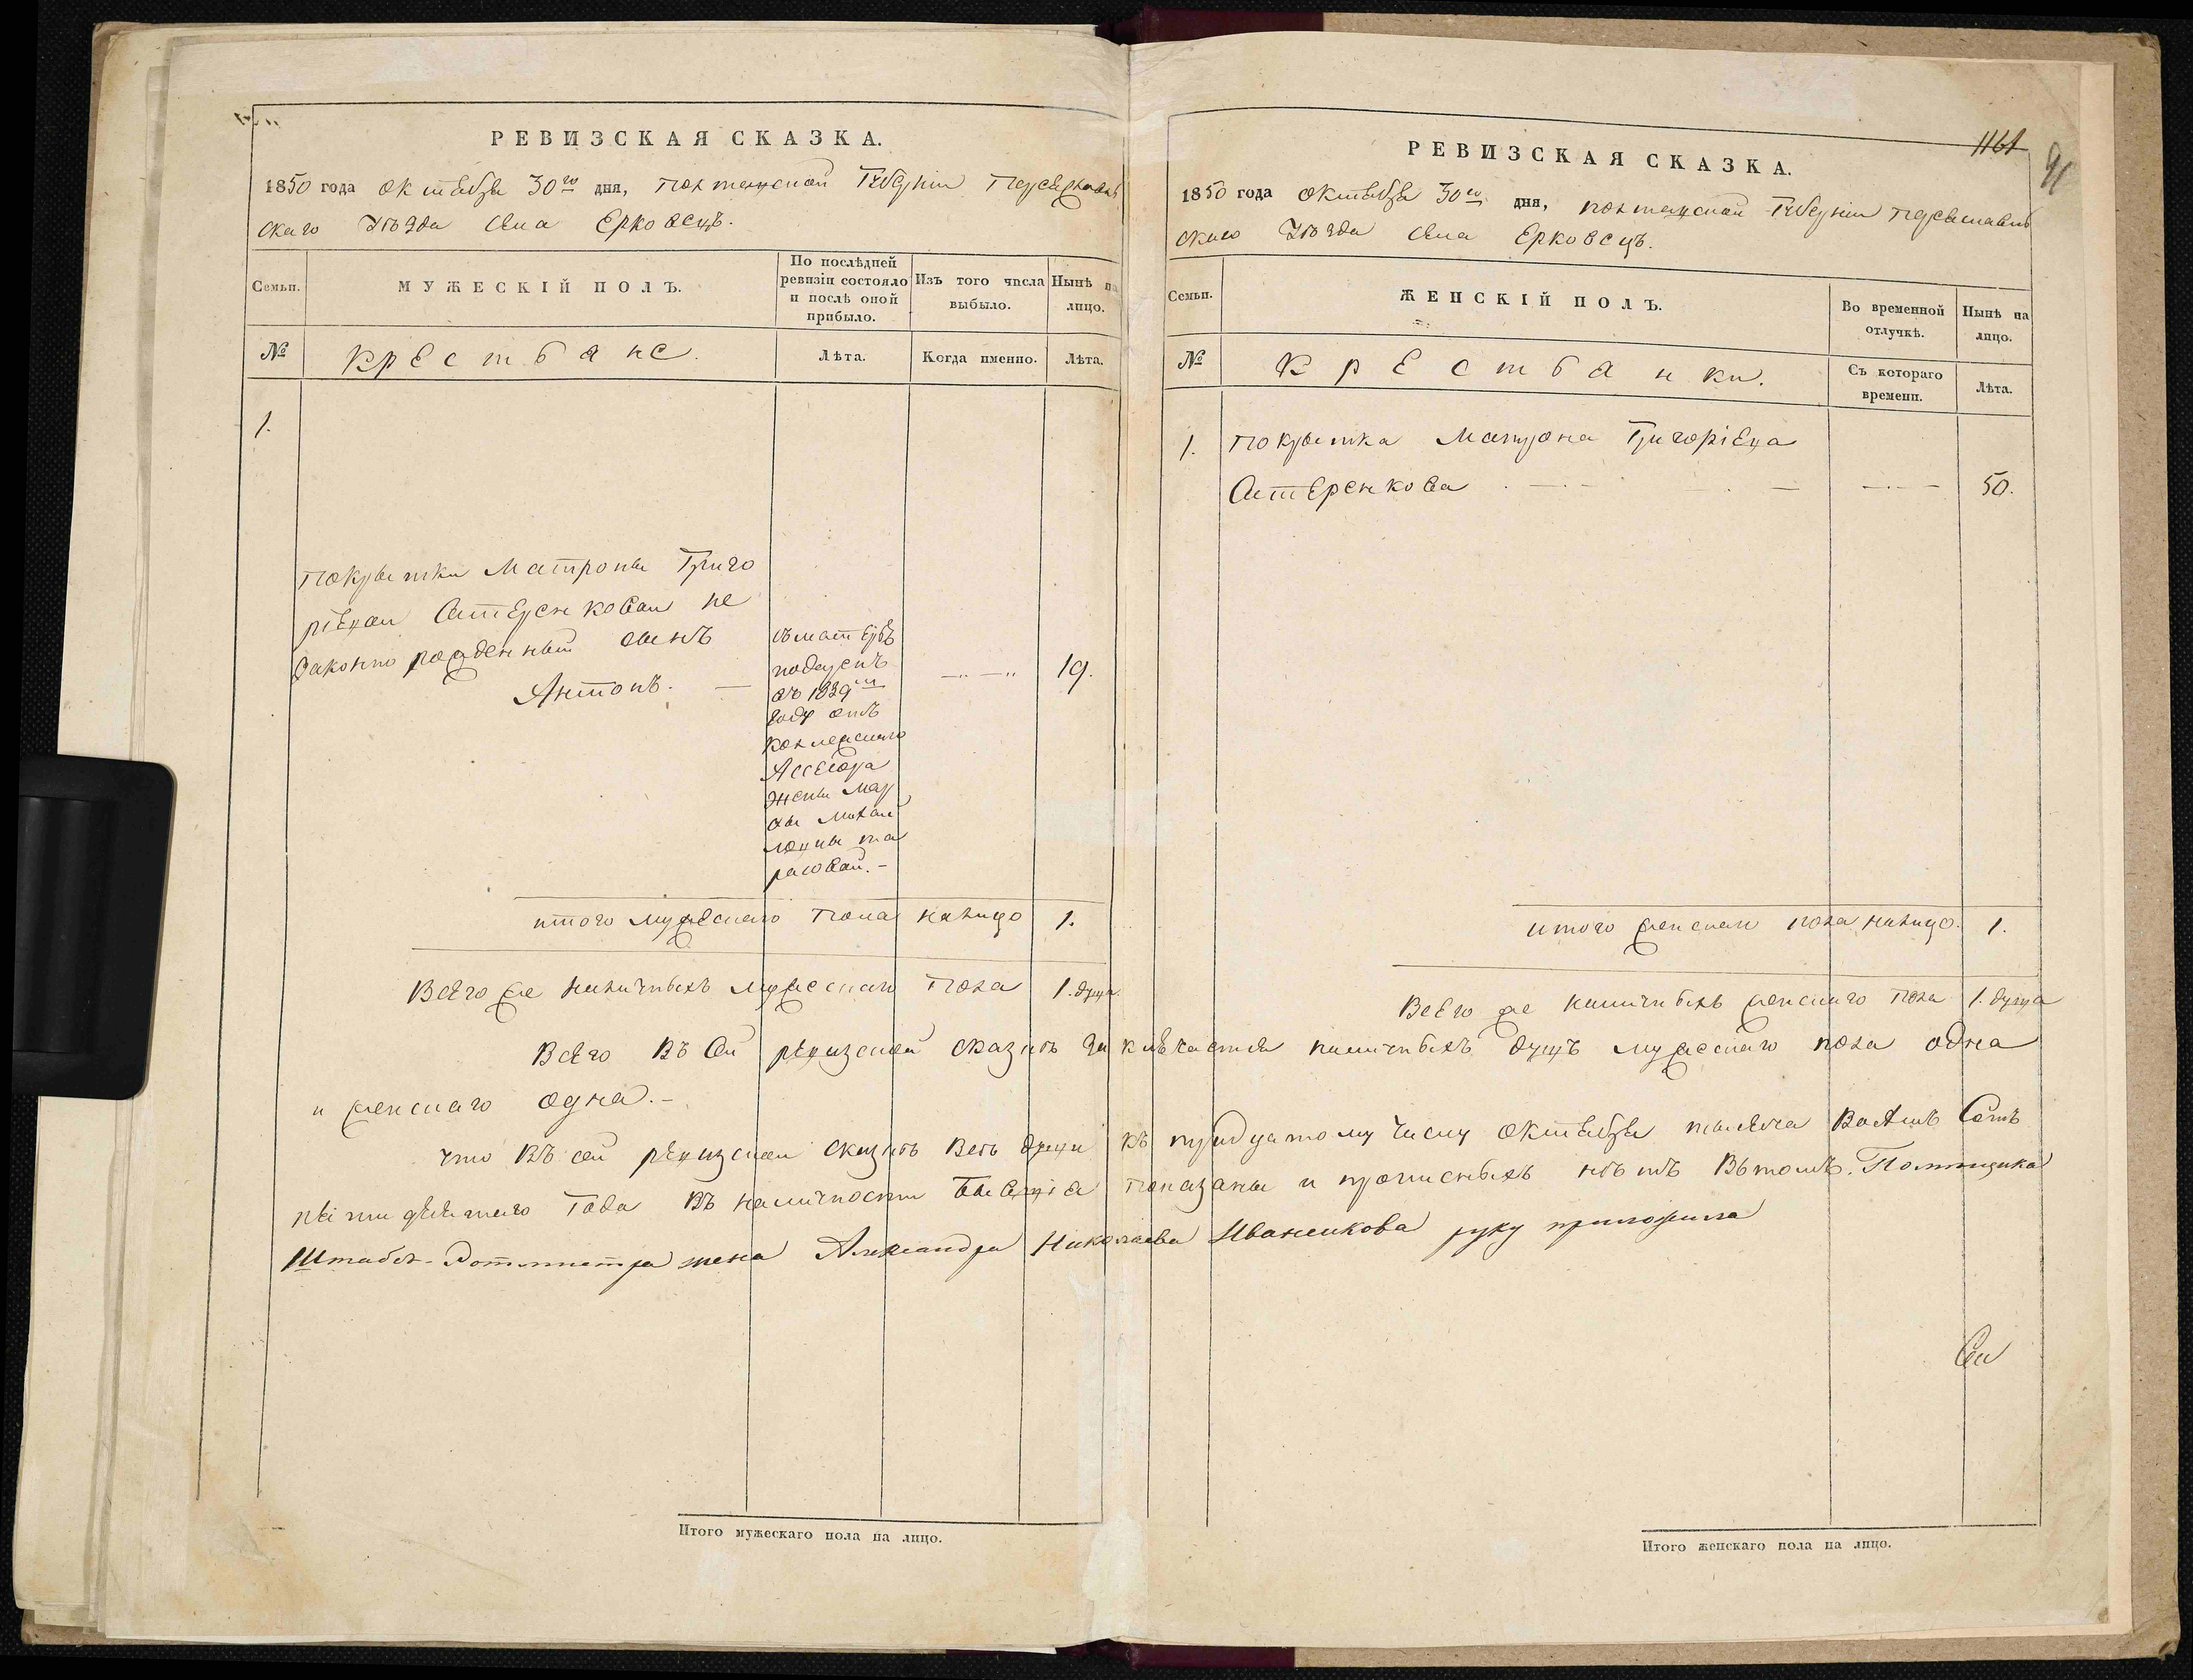 РЕВИЗСКАЯ СКАЗКА.
1850 года октября 30го дня, Полтавской Губерніи Переяслав
скаго Уѣзда села Ерковецъ.
Семьи.
МУЖЕСКІЙ ПОЛЪ.
По послѣдней ревизіи состояло и послѣ оной прибыло.
Изъ того числа выбыло.
Нынѣ на лицо.
№
Крестьяне.
Лѣта.
Когда именно.
Лѣта.
1.
Покрытки Матроны Григо
рiевой Нестеренковой не
законно рожденный сынъ
Антонъ. —
съ матерью
подаренъ
въ 1839м
году отъ
коллежскаго
Ассесора
жены Мар
фы Михай
ловны та
расовой. —
19.
итого мужескаго пола налицо 1.
Всего же наличныхъ мужескаго пола 1. душа.
РЕВИЗСКАЯ СКАЗКА.
1161
1850 года октября 30го дня, Полтавской Губерніи Переяславъ
скаго Уѣзда села Ерковецъ.
Семьи.
ЖЕНСКІЙ ПОЛЪ.
Во временной отлучкѣ.
Нынѣ на лицо.
№
Крестьянки.
Съ котораго времени.
Лѣта.
1. Покрытка Матрона Григоріева
50.
итого женскаго пола налицо. 1.
Всего же наличныхъ женскаго пола 1. душа
Всего въ сей ревизской сказкѣ наличныхъ душъ мужескаго пола одна
и женскаго одна. —
что въ сей ревизской сказкѣ всѣ души къ тридцатому числу октября тысяча восемь сотъ
пятидесятаго года въ наличности бывшіе показаны и прописныхъ нѣтъ въ томъ. Помѣщика
Штабсъ-Ротмистра жена Александра Николаева Иваненкова руку приложила
Итого мужескаго пола на лицо.
Итого женскаго пола на лицо.